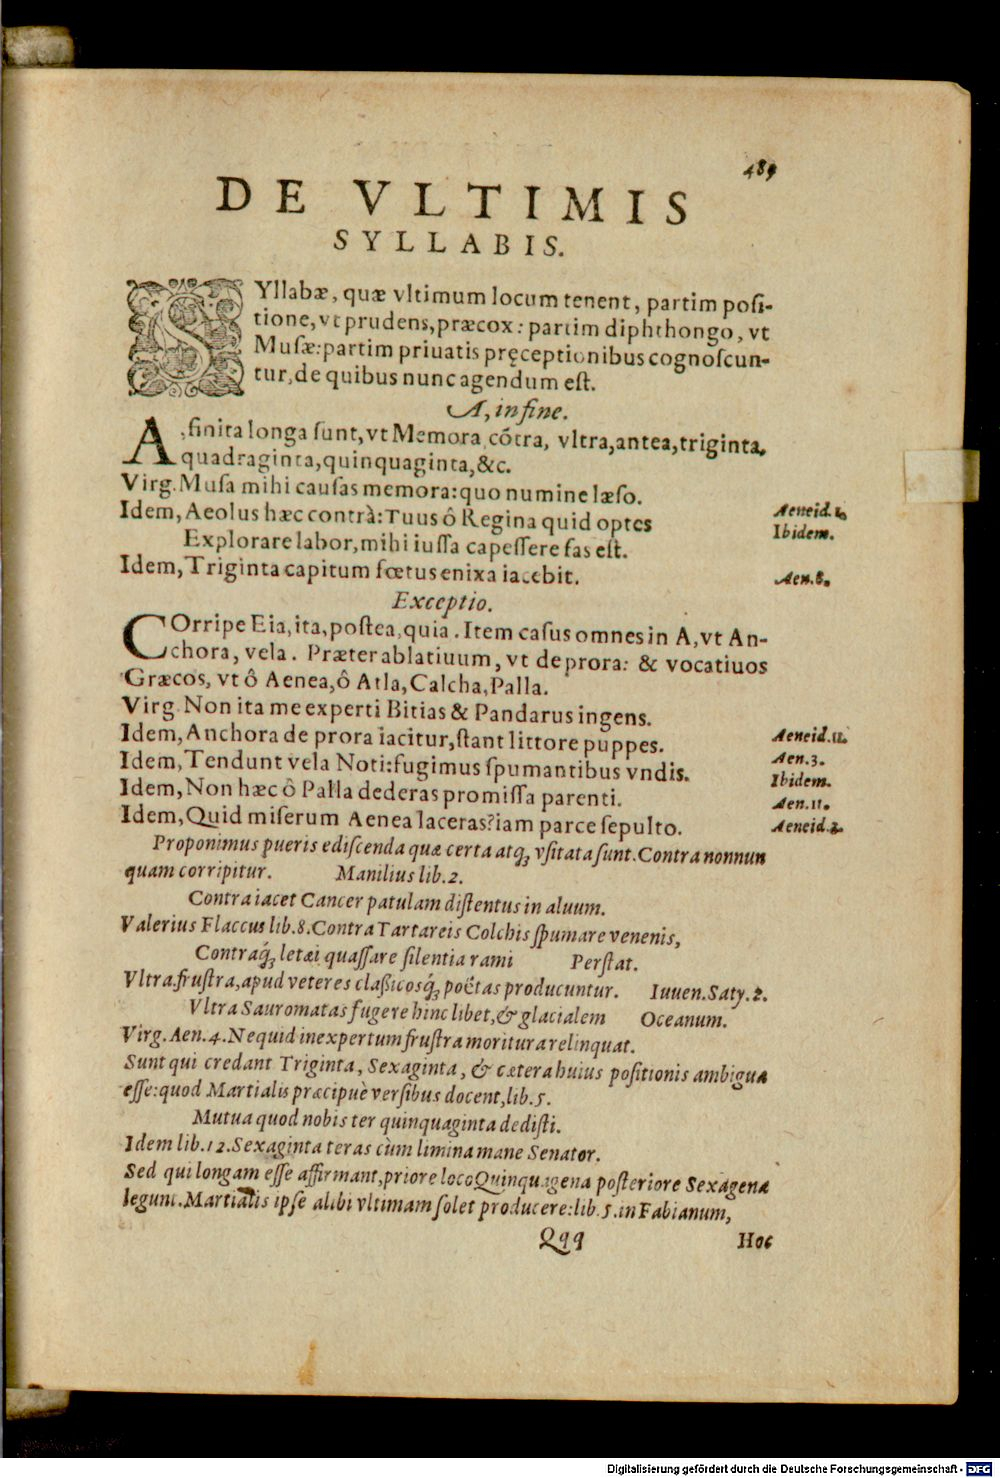 489
DE VLTIMIS
SYLLABIS.
SYllabæ, quæ vltimum locum tenent, partim posi-
tione, vt prudens, præcox: partim diphthongo, vt
Musæ: partim priuatis pręceptionibus cognoscun-
tur, de quibus nunc agendum est.
A, in fine.
A, finita longa sunt, vt Memora, cõtra, vltra, antea, triginta,
quadraginta, quinquaginta, &c.
Virg. Musa mihi causas memora: quo numine læso.
Idem, Aeolus hæc contrà: Tuus ô Regina quid optes Aeneid.1.
Explorare labor, mihi iussa capessere fas est. Ibidem.
Idem, Triginta capitum fœtus enixa iacebit. Aen.8.
Exceptio.
COrripe Eia, ita, postea, quia. Item casus omnes in A, vt An-
chora, vela. Præter ablatiuum, vt de prora: & vocatiuos
Græcos, vt ô Aenea, ô Atla, Calcha, Palla.
Virg. Non ita me experti Bitias & Pandarus ingens.
Idem, Anchora de prora iacitur, stant littore puppes. Aeneid.11.
Idem, Tendunt vela Noti: fugimus spumantibus vndis. Aen.3.
Idem, Non hæc ô Palla dederas promissa parenti. Ibidem.
Idem, Quid miserum Aenea laceras? iam parce sepulto. Aen.11.
Aeneid.3.
Proponimus pueris ediscenda quæ certa atq; vsitata sunt. Contra nonnun
quam corripitur. Manilius lib.2.
Contra iacet Cancer patulam distentus in aluum.
Valerius Flaccus lib.8. Contra Tartareis Colchis spumare venenis,
Contraq́; letæi quassare silentia rami Perstat.
Vltra, frustra, apud veteres classicosq́; poëtas producuntur. Iuuen. Saty.2.
Vltra Sauromatas fugere hinc libet, & glacialem Oceanum.
Virg. Aen.4. Ne quid inexpertum frustra moritura relinquat.
Sunt qui credant Triginta, Sexaginta, & cætera huius positionis ambigua
esse: quod Martialis præcipuè versibus docent, lib.5.
Mutua quod nobis ter quinquaginta dedisti.
Idem lib.12. Sexaginta teras cùm limina mane Senator.
Sed qui longam esse affirmant, priore loco Quinquagena posteriore Sexagena
legunt. Martialis ipse alibi vltimam solet producere: lib.5. in Fabianum,
Qqq Hoc
Digitalisierung gefördert durch die Deutsche Forschungsgemeinschaft - DFG